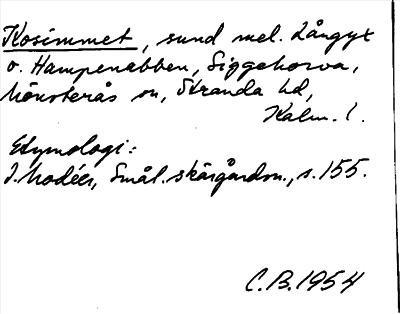 Kosimmet, sund mel. Långyx
o. Hampenabben, Siggehorva,
Mönsterås sn, Stranda hd,
Kalm. l.
Etymologi:
I. Modéer, Smål. skärgårdsn., s. 155.
C.B. 1954